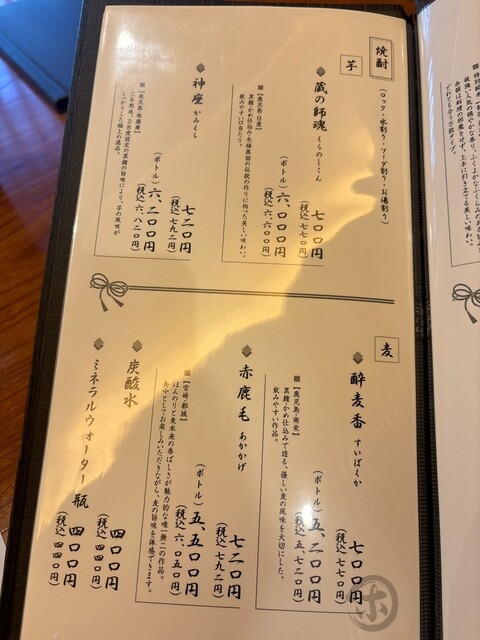 焼酎
(ロック・水割り・ソーダ割り・お湯割り)
芋
蔵の師魂 くらのしこん
七〇〇円
(税込 七七〇円)
(ボトル) 六、〇〇〇円
(税込 六、六〇〇円)
【鹿児島・日置】
黒麹・かめ仕込み・木桶蒸留の伝統の作りに拘った美しい味わい。
飲みやすい口当たり。
神座 かみくら
七二〇円
(税込 七九二円)
(ボトル) 六、二〇〇円
(税込 六、八二〇円)
しっかりした極上の逸品。
麦
酔麦香 すいばくか
七〇〇円
(税込 七七〇円)
(ボトル) 五、二〇〇円
(税込 五、七二〇円)
黒麹・かめ仕込みで造る、優しい麦の風味を大切にした、
飲みやすい作品。
赤鹿毛 あかかげ
七二〇円
(税込 七九二円)
(ボトル) 五、五〇〇円
(税込 六、〇五〇円)
【宮崎・都城】
ほんのりと麦本来の香ばしさが魅力的な唯一無二の作品。
食中としてお楽しみいただきながら、麦の旨味を体感できます。
炭酸水
四〇〇円
(税込 四四〇円)
ミネラルウォーター 瓶
四〇〇円
(税込 四四〇円)
ホ